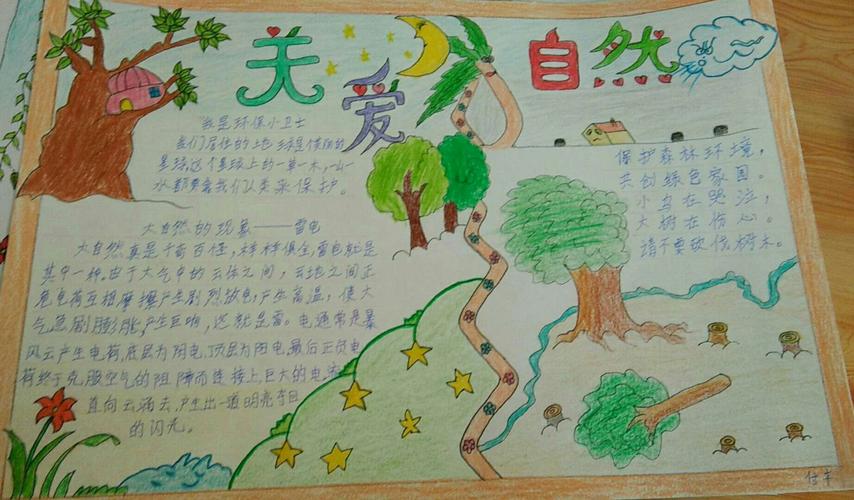 关爱自然
我是环保小卫士
我们居住的地球是美丽的
星球,这个星球上的一草一木,一山一
水都需要我们人类来保护。
大自然的现象——雷电
大自然真是千奇百怪,样样俱全,雷电就是
其中一种。由于大气中的云体之间,云地之间正
负电荷互相摩擦产生剧烈放电,产生高温,使大
气急剧膨胀,产生巨响,这就是雷。电通常是暴
风云产生电荷,底层为阴电,顶层为阳电,最后正负电
荷终于克服空气的阻障而连接上,巨大的电流
直向云涌去,产生出一道明亮夺目
的闪光。
保护森林环境,
共创绿色家园。
小鸟在哭泣,
大树在伤心。
请不要砍伐树木。